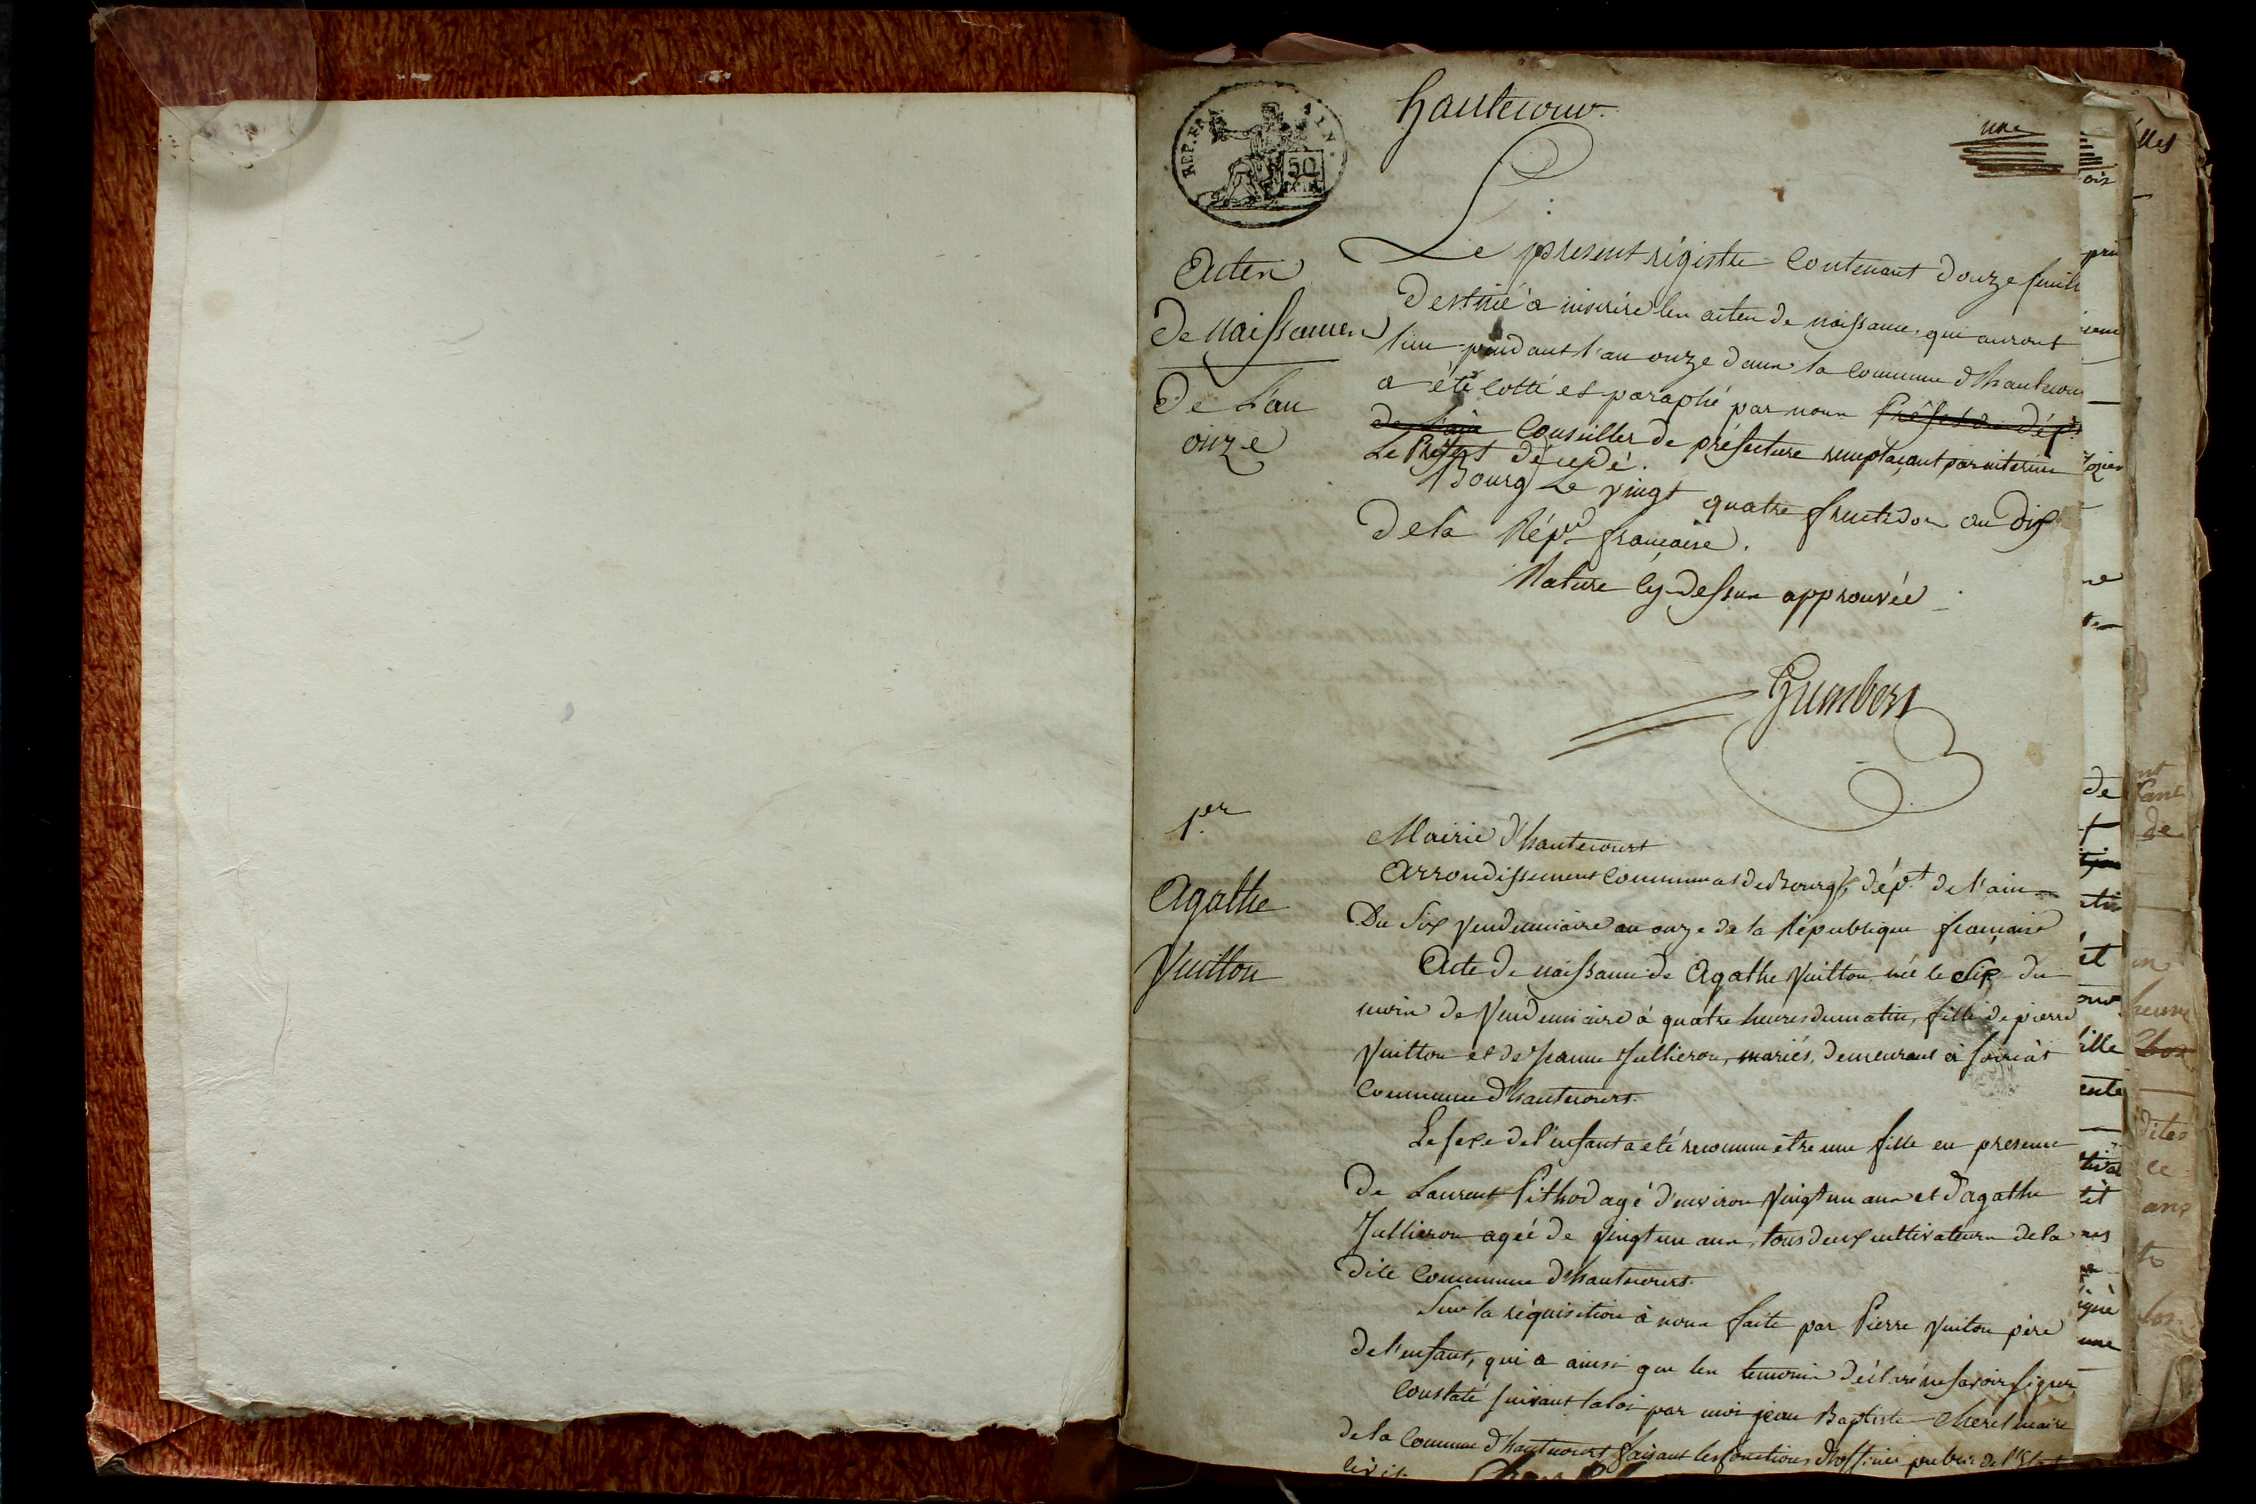 hautecour
une
REP. FRA
AIN.
50
Actes
de naissances
De L'an
onze
Le présent régistre contenant douze feuil
Destiné a inscrire les actes de naissance qui auront
lieu pendant l'an onze dans la commune d'hautecour
a été cotté et paraphé par nous Préfet du dépt
de l'ain Conseiller de préfecture remplaçant par interim
Le Préfet décédé.
Bourg Le vingt quatre fructidor an Dix
De la Répe française.
Rature cy-dessus approuvée
Humbert
1.er
Agathe
Vuitton
Mairie d'hautecourt
Arrondissement communal de Bourg, dépt. de l'ain
Du Six Vendemiaire an onze de la République française
Acte de naissance de Agathe Vuitton née le Six du
mois de Vendemiaire à quatre heures du matin, fille de pierre
Vuitton et de Jeanne Jullieron, mariés, demeurant à
commune d'hautecourt.
Le sexe de l'enfant a eté reconnu être une fille en presence
De Laurent Pithod agé d'environ Vingt un ans et d'agathe
Jullieron agée de vingt un ans, tous deux cultivateurs de la
dite commune d'hautecourt.
Sur la réquisition à nous faite par Pierre Vuiton père
de l'enfant, qui a ainsi que les temoins déclaré ne savoir signer
Constaté suivant la loi par moi jean Baptiste maire
de la Commune d'hautecourt faisant les fonctions d'officier public de l'Etat
civil.